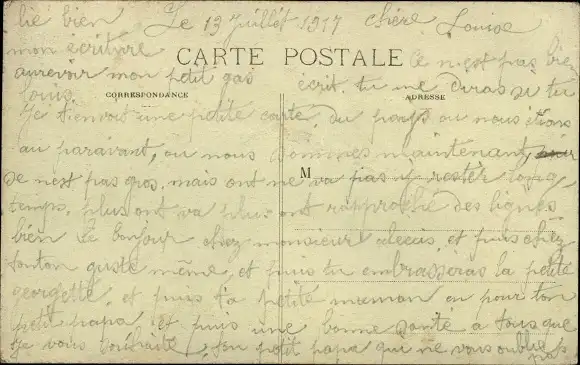 lié bien Le 13 Juillet 1917 chère Louise
mon écriture
CARTE POSTALE
Ce n'est pas bien
aurevoir mon petit gas
écrit. tu me diras si tu
CORRESPONDANCE
ADRESSE
Je t'envoit une petite carte, du pays ou nous étions
au paravant, ou nous sommes maintenant,
se n'est pas gros, mais ont ne va pas y rester long
M
temps, plus ont va plus ont rapproche des lignes
bien le bonjour chez monsieur alexis, et puis chez
tonton guste même, et puis tu embrasseras la petite
georgette, et puis ta petite maman en pour ton
petit papa, et puis une bonne santé a tous que
Je vous souhaite, ton petit papa qui ne vous oublie pas